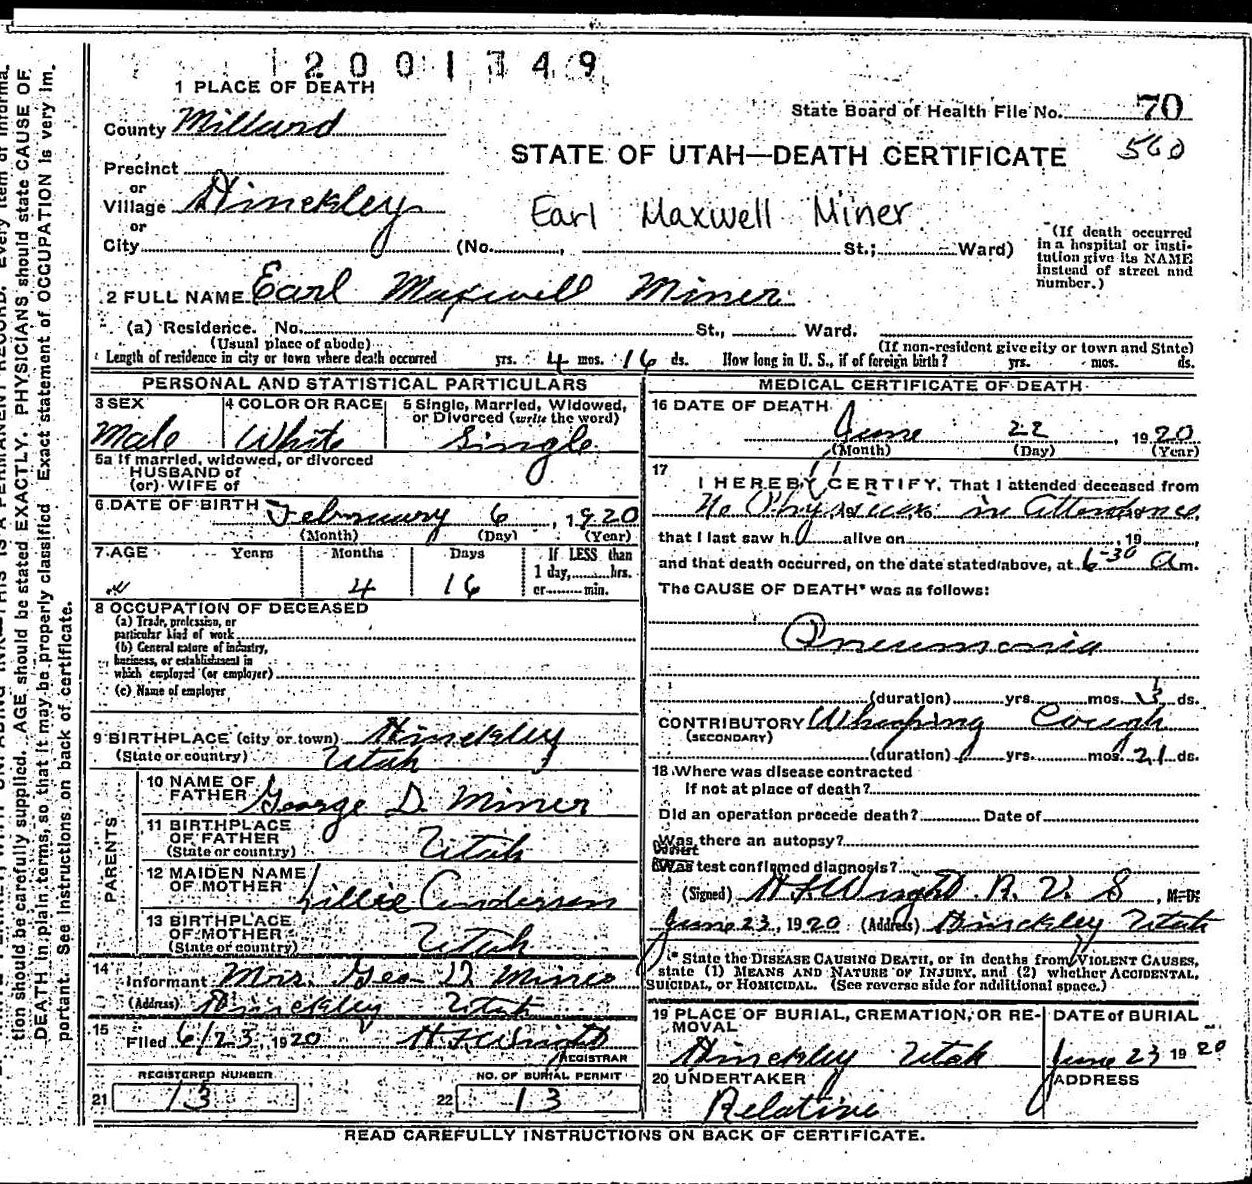 2001349
1 PLACE OF DEATH
State Board of Health File No. 70
County Millard
STATE OF UTAH—DEATH CERTIFICATE 560
Precinct
or
Village Hinckley
Earl Maxwell Miner
or
City (No. , St.; Ward)
(If death occurred in a hospital or insti-
tution give its NAME
instead of street and
number.)
2 FULL NAME Earl Maxwell Miner
(a) Residence. No. St., Ward.
(Usual place of abode) (If non-resident give city or town and State)
Length of residence in city or town where death occurred yrs. 4 mos. 16 ds. How long in U. S., if of foreign birth? yrs. mos. ds.
PERSONAL AND STATISTICAL PARTICULARS
3 SEX 4 COLOR OR RACE 5 Single, Married, Widowed,
or Divorced (write the word)
Male White Single
5a If married, widowed, or divorced
HUSBAND of
(or) WIFE of
6 DATE OF BIRTH February 6, 1920
(Month) (Day) (Year)
7 AGE Years Months Days If LESS than
1 day, hrs.
4 16 or min.
8 OCCUPATION OF DECEASED
(a) Trade, profession, or
particular kind of work
(b) General nature of industry,
business, or establishment in
which employed (or employer)
(c) Name of employer
9 BIRTHPLACE (city or town) Hinckley
(State or country) Utah
PARENTS
10 NAME OF
FATHER George D. Miner
11 BIRTHPLACE
OF FATHER
(State or country) Utah
12 MAIDEN NAME
OF MOTHER Lillie Anderson
13 BIRTHPLACE
OF MOTHER
(State or country) Utah
14 Informant Mrs. Geo D. Miner
(Address) Hinckley Utah
15 Filed 6/23, 1920 H F Wright
REGISTRAR
REGISTERED NUMBER NO. OF BURIAL PERMIT
21 13 22 13
MEDICAL CERTIFICATE OF DEATH
16 DATE OF DEATH
June 22, 1920
(Month) (Day) (Year)
17 I HEREBY CERTIFY, That I attended deceased from
No Physician in Attendance
that I last saw h alive on , 19
and that death occurred, on the date stated above, at 6-30 a m.
The CAUSE OF DEATH* was as follows:
Pneumonia
(duration) yrs. mos. 3 ds.
CONTRIBUTORY Whooping Cough
(SECONDARY)
(duration) yrs. mos. 21 ds.
18 Where was disease contracted
If not at place of death?
Did an operation precede death? Date of
Was there an autopsy?
What test confirmed diagnosis?
(Signed) H F Wright R. V. S, M. D.
June 23, 1920 (Address) Hinckley Utah
* State the DISEASE CAUSING DEATH, or in deaths from VIOLENT CAUSES,
state (1) MEANS AND NATURE OF INJURY, and (2) whether ACCIDENTAL,
SUICIDAL, or HOMICIDAL. (See reverse side for additional space.)
19 PLACE OF BURIAL, CREMATION, OR RE-
MOVAL
DATE of BURIAL
Hinckley Utah June 23 1920
20 UNDERTAKER ADDRESS
Relative
READ CAREFULLY INSTRUCTIONS ON BACK OF CERTIFICATE.
tion should be carefully supplied. AGE should be stated EXACTLY. PHYSICIANS should state CAUSE OF
DEATH in plain terms, so that it may be properly classified. Exact statement of OCCUPATION is very im-
portant. See Instructions on back of certificate.